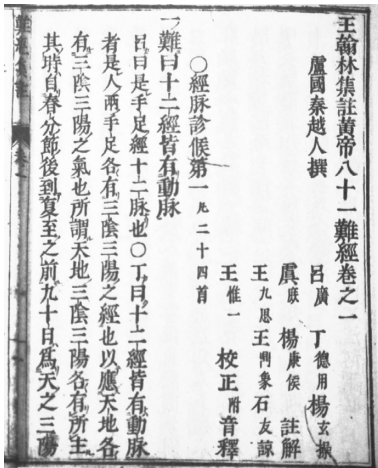 王翰林集註黃帝八十一難經卷之一
盧國秦越人撰
呂廣 丁德用 楊玄操
虞庶 楊康侯 註解
王九思 王鼎象 石友諒
王惟一 校正附音釋
○經脉診候第一凡二十四首
一難曰十二經皆有動脉
呂曰是手足經十二脉也○丁曰十二經皆有動脉
者是人兩手足各有三陰三陽之經也以應天地各
有三陰三陽之氣也所謂天地三陰三陽各有所主
其時自春分節後到夏至之前九十日爲天之三陽